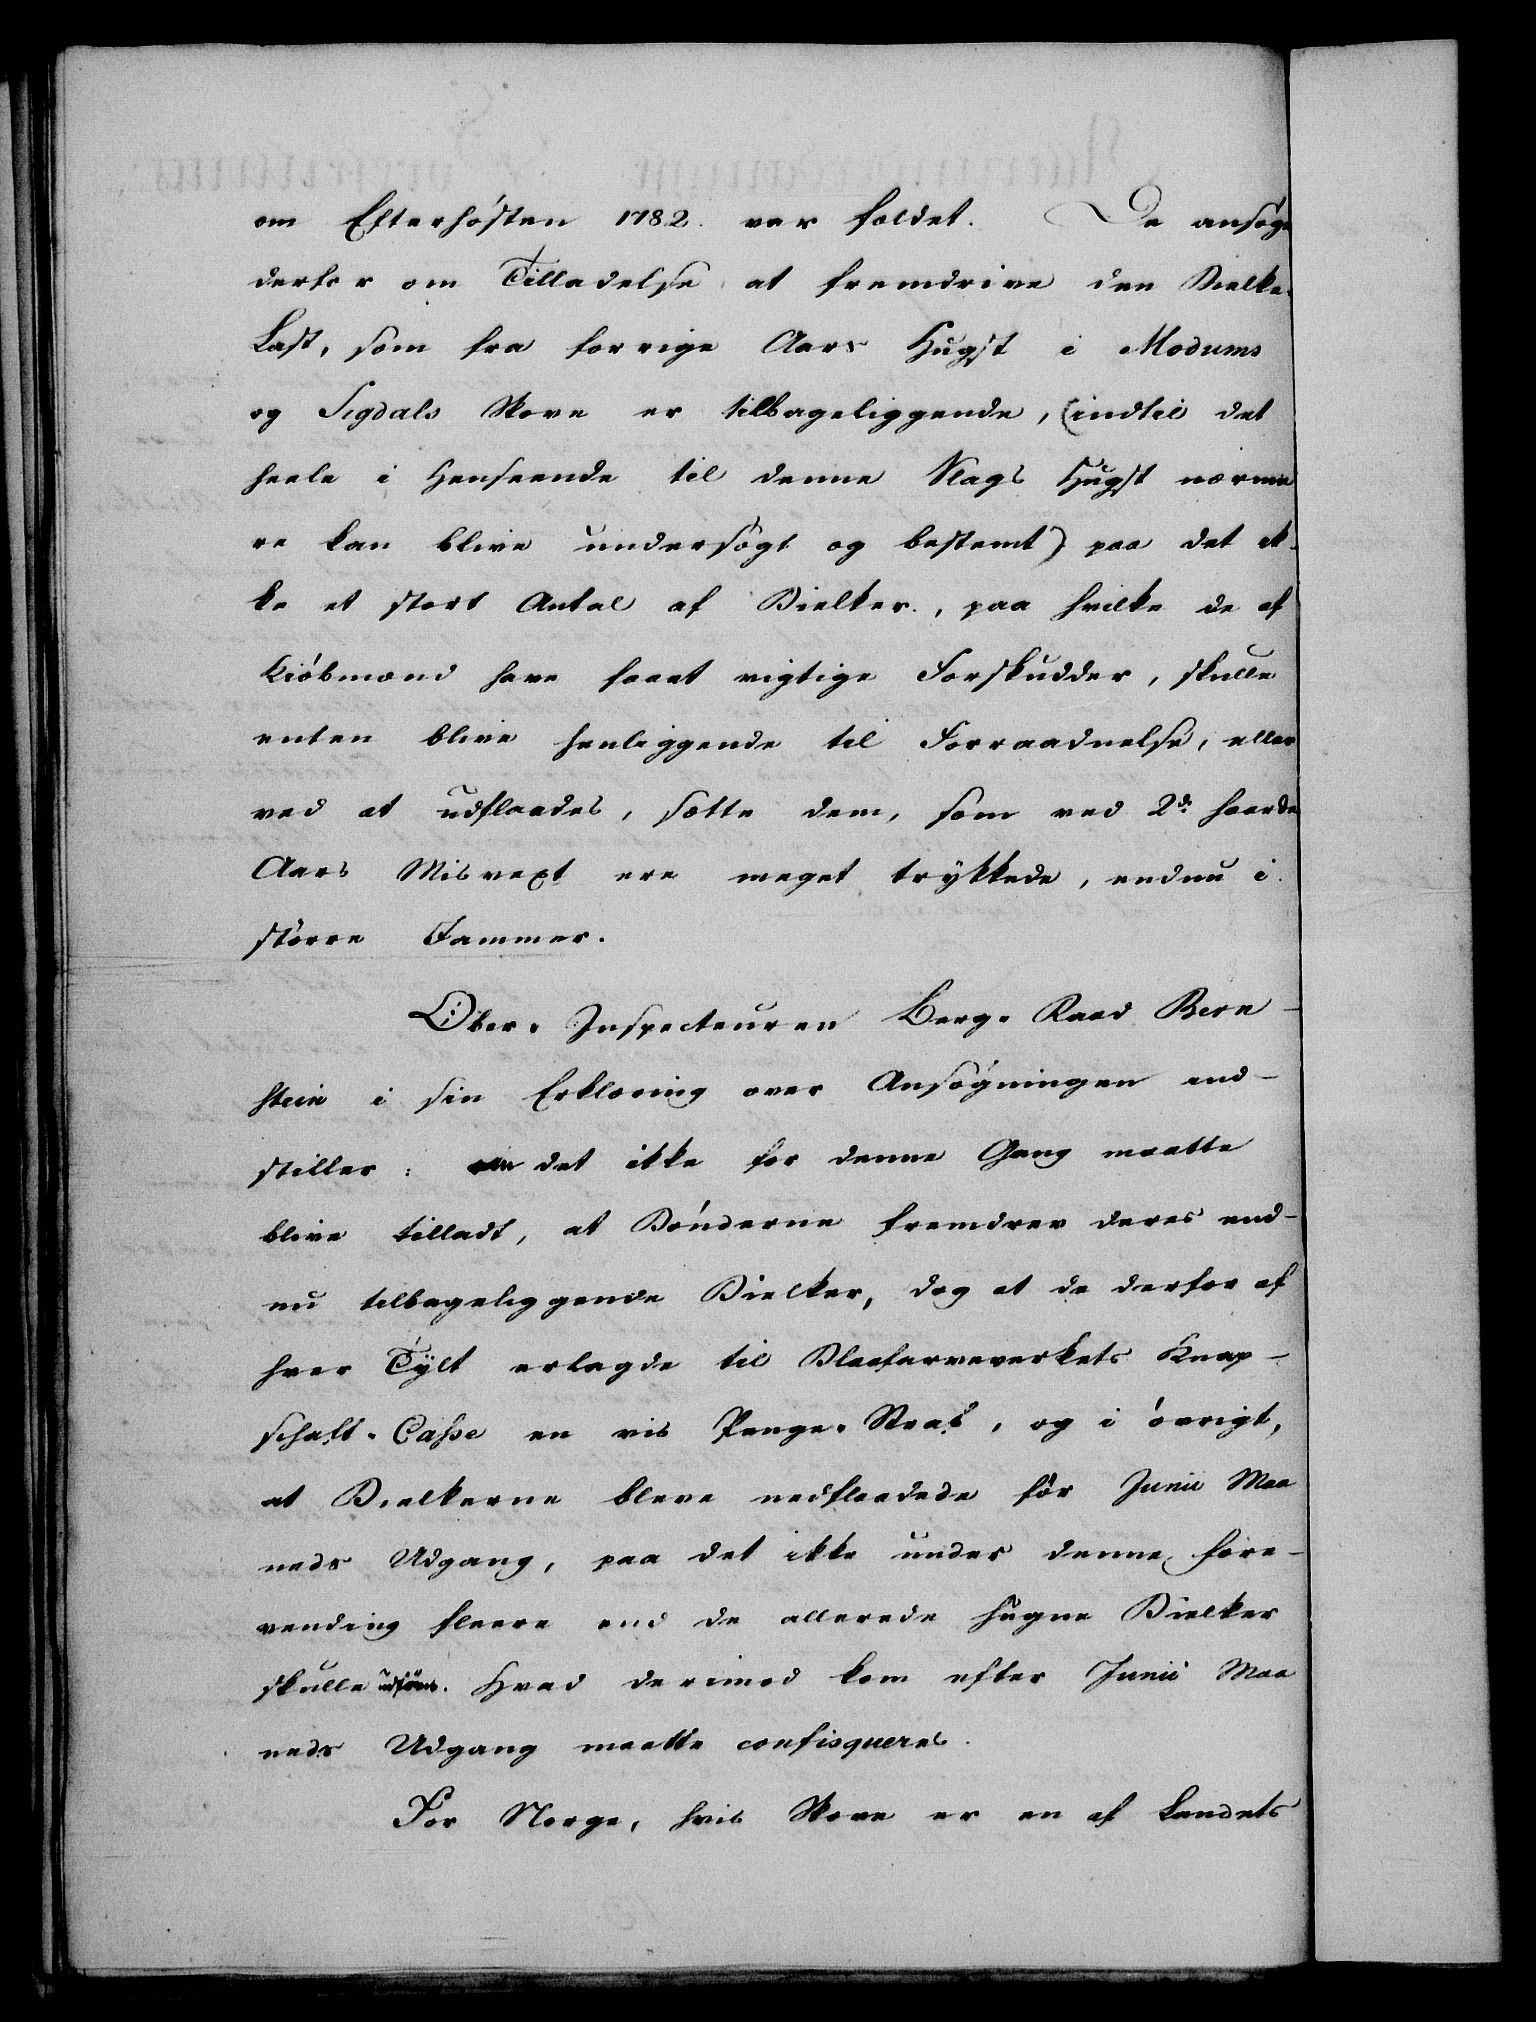 om Efterhösten 1782. var fældet. De ansøge
derfor om Tilladelse at fremdrive den Bielke-
Last, som fra forrige Aars Hugst i Modums
og Sigdals Skove er tilbageliggende, (indtil det
heele i Henseende til denne Slags Hugst nærme
re kan blive undersøgt og bestemt) paa det ik-
ke et stort Antal af Bielker, paa hvilke de af
Kiöbmænd have faaet vigtige Forskudder, skulle
enten blive henliggende til Forraadnelse, eller
ved at udflaades, sætte dem, som ved 2de haarde
Aars Misvext ere meget trykkede, endnu i
större Jammer.
Ober-Inspecteuren Berg-Raad Bern-
stein i sin Erklæring over Ansøgningen ind-
stiller: det ikke for denne Gang maatte
blive tilladt, at Bönderne fremdrev deres end-
nu tilbageliggende Bielker, dog at de derfor af
hver Tylt erlagde til Blaafarveverkets Knap-
schaft-Casse en vis Penge-Straf, og i övrigt,
at Bielkerne bleve nedflaadede för Junii Maa
neds Udgang, paa det ikke under denne fore-
vending fleere end de allerede hugne Bielker
skulle udföres. Hvad derimod kom efter Junii Maa
neds Udgang maatte confisqueres.
For Norge, hvis Skove er en af Landets